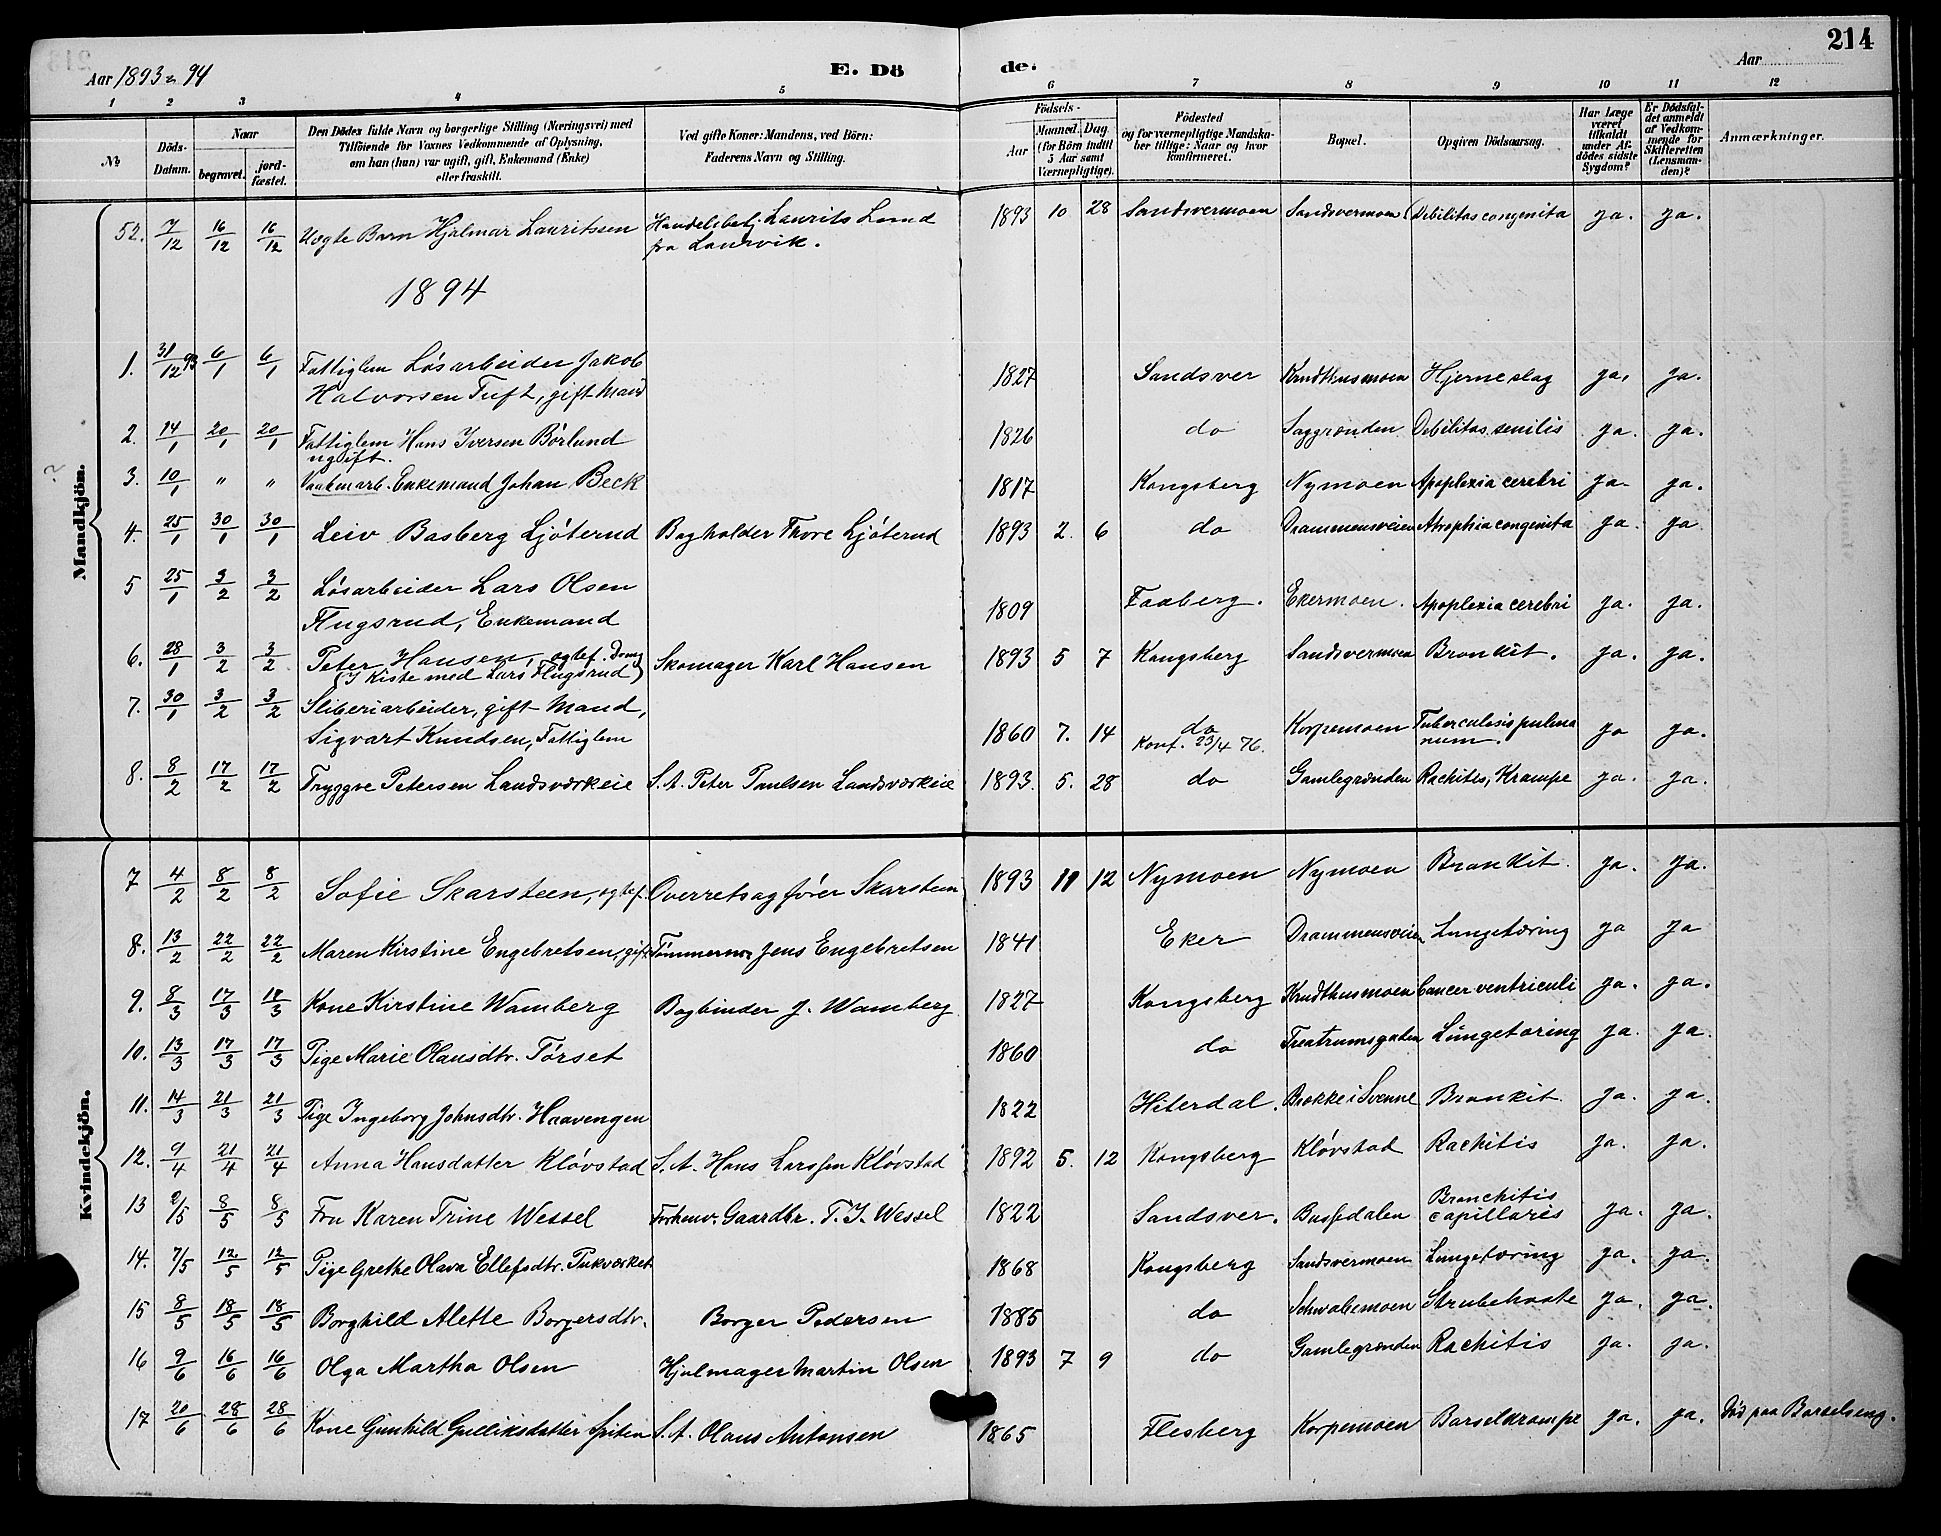 214
Aar 1893 & 94
E. Dö de.
Aar
1 2 3 4 5 6 7 8 9 10 11 12
№ Döds-Datum. Naar begravet. jord-fæstet. Den Dödes fulde Navn og borgerlige Stilling (Næringsvei) med Tilföiende for Voxnes Vedkommende af Oplysning, om han (hun) var ugift, gift, Enkemand (Enke) eller fraskilt. Ved gifte Koner: Mandens, ved Börn: Faderens Navn og Stilling. Födsels- Aar Maaned. Dag (for Börn indtil 5 Aar samt Værnepligtige). Födested og for værnepligtige Mandska-ber tillige: Naar og hvor konfirmeret. Bopæl. Opgiven Dödsaarsag. Har Læge været tilkaldt under Af-dödes sidste Sygdom? Er Dödsfal-det anmeldt af Vedkom-mende for Skifteretten (Lensman-den)? Anmærkninger.
Mandkjön.
52. 7/12 16/12 16/12 Uægte Barn Hjalmar Lauritssen Handelsbetj. Laurits Lund 1893 10 28 Sandsvermoen Sandsvermoen Debilitas congenita ja. ja.
fra Laurvik.
1894
1. 31/12 93 6/1 6/1 Fattiglem Løsarbeider Jakob
Halvorsen Tuft, gift Mand 1827 Sandsver Krudthusmoen Hjerneslag ja. ja.
2. 14/1 20/1 20/1 Fattiglem Hans Iversen Børlund 1826 do Saggrenden Debilitas senilis ja. ja.
ugift.
3. 10/1 " " Vaabenarb. Enkemand Johan Beck 1817 Kongsberg Nymoen Apoplexia cerebri ja. ja.
4. 25/1 30/1 30/1 Leiv Basberg Ljøterud Bogholder Thore Ljøterud 1893 2. 6 do Drammensveien Atrophia congenita ja. ja
5 25/1 3/2 3/2 Løsarbeider Lars Olsen
Flugsrud, Enkemand 1809 Faaberg. Ekermoen. Apoplexia cerebri ja. ja.
6. 28/1 3/2 3/2 Peter Hansen, ægtef. Dreng Skomager Karl Hansen 1893 5 7 Kongsberg Sandsvermoen Bronkit. ja. ja.
(I Kiste med Lars Flugsrud)
7. 30/1 3/2 3/2 Sliberiarbeider, gift Mand,
Sigvart Knudsen, Fattiglem 1860 7. 14 do Korpemoen Tuberculosis pulmo ja ja.
Konf. 23/4 76. num.
8. 8/2 17/2 17/2 Tryggve Petersen Landsværkeie S. A. Peter Paulsen Landsværkeie 1893. 5. 28 do Gamlegrenden Rachitis, Krampe ja. ja.
Kvindekjön.
7 4/2 8/2 8/2 Sofie Skarsteen, ægtef. Overretsagfører Skarsteen 1893 11 12 Nymoen Nymoen Bronkit. ja. ja.
8. 13/2 22/2 22/2 Maren Kirstine Engebretsen, gift Jens Engebretsen 1841 Eker Drammensveien Lungetæring ja ja
9. 8/3 17/3 17/3 Kone Kirstine Wamberg Bogbinder J. Wamberg 1827 Kongsberg Krudthusmoen Cancer ventriculi ja. ja.
10. 13/3 17/3 17/3 Pige Marie Olausdtr. Tørset 1860 do Treatrumsgaden Lungetæring ja. ja.
11. 14/3 21/3 21/3 Pige Ingeborg Johnsdtr. Haavengen 1822 Hiterdal. Brekke i Svenne Bronkit. ja. ja.
12. 9/4 21/4 21/4 Anna Hansdatter Kløvstad S. A. Hans Larssen Kløvstad 1892 5. 12 Kongsberg Kløvstad Rachitis ja. ja.
13 2/5 8/5 8/5 Fru Karen Trine Wessel Forhenv. Gaardbr. T. J. Wessel 1822 Sandsver. Bassedalen Bronchitis capillaris ja. ja.
14. 7/5 12/5 12/5 Pige Grethe Olava Ellefsdtr. Pukværket 1868 Kongsberg Sandsvermoen Lungetæring ja. ja.
15 8/5 18/5 18/5 Borghild Alette Borgersdtr. Borger Pedersen 1885 do Schwabemoen Strubehoste ja. ja.
16 9/6 16/6 16/6 Olga Martha Olsen Hjulmager Martin Olsen 1893 7 9 do Gamlegrenden Rachitis ja. ja.
17 20/6 28/6 28/6 Kone Gunhild Gulliksdatter S. A. Olaus Antonsen 1865 Flesberg Korpemoen Barselkrampe ja. ja. Død paa Barselseng.